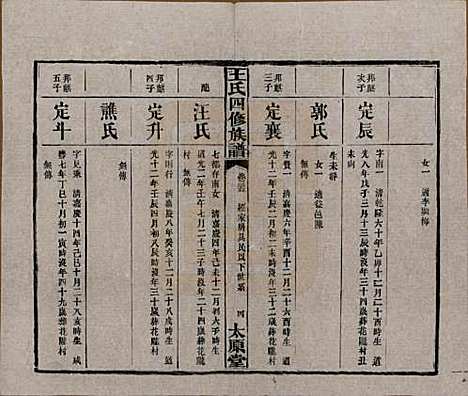 女一 適李興梅
邦麒次子
定辰
字 清乾隆六十年乙卯十二月二十酉時生 道
光八年戊子三月二十三日辰時沒年三十四歲葬花隴村丑
未向
郭氏
生沒未詳
女一 適益邑陳
邦麒三子
定襄
字贊一 清嘉慶六年辛酉十二月二十一酉時生 道
光十二年壬辰二月初二未時沒年三十二歲葬花隴村
無傳
王氏四修族譜
卷
世系
四
太原堂
配
汪氏
七都存南女 清嘉慶四年己未十二月初六子時生
道光二年壬午七月二十三子時沒年二十四歲葬花隴
村 無傳
邦麒四子
定升
字南行 清嘉慶八年癸亥十二月二十八戌時生 道
光十二年壬辰四月初三戌時沒年三十歲葬花隴村
無傳
譙氏
無傳
邦麒五子
定斗
字足乘 清嘉慶十四年己巳十月二十八亥時生 咸
豐七年丁巳十月初一寅時沒年四十九歲葬花隴村
無傳